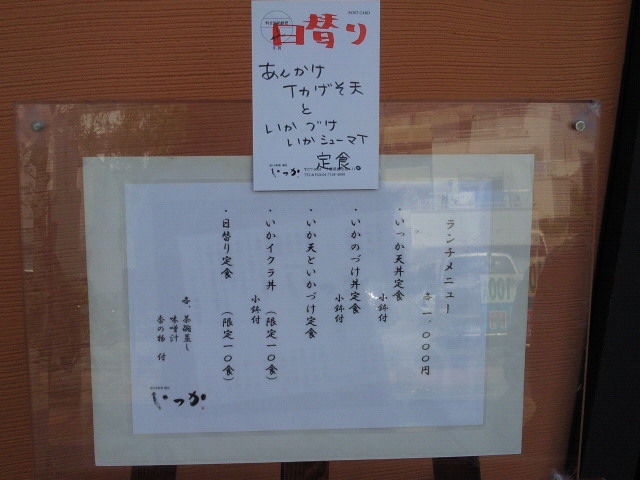 日替り
あんかけ
と
いかづけ
いかシューマイ
定食。
いっか
ランチメニュー
各一、〇〇〇円
・いっか天丼定食
小鉢付
・いかのづけ丼定食
小鉢付
・いか天といかづけ定食
・いかイクラ丼（限定一〇食）
小鉢付
・日替り定食（限定一〇食）
各、茶碗蒸し
味噌汁
香の物 付
いっか